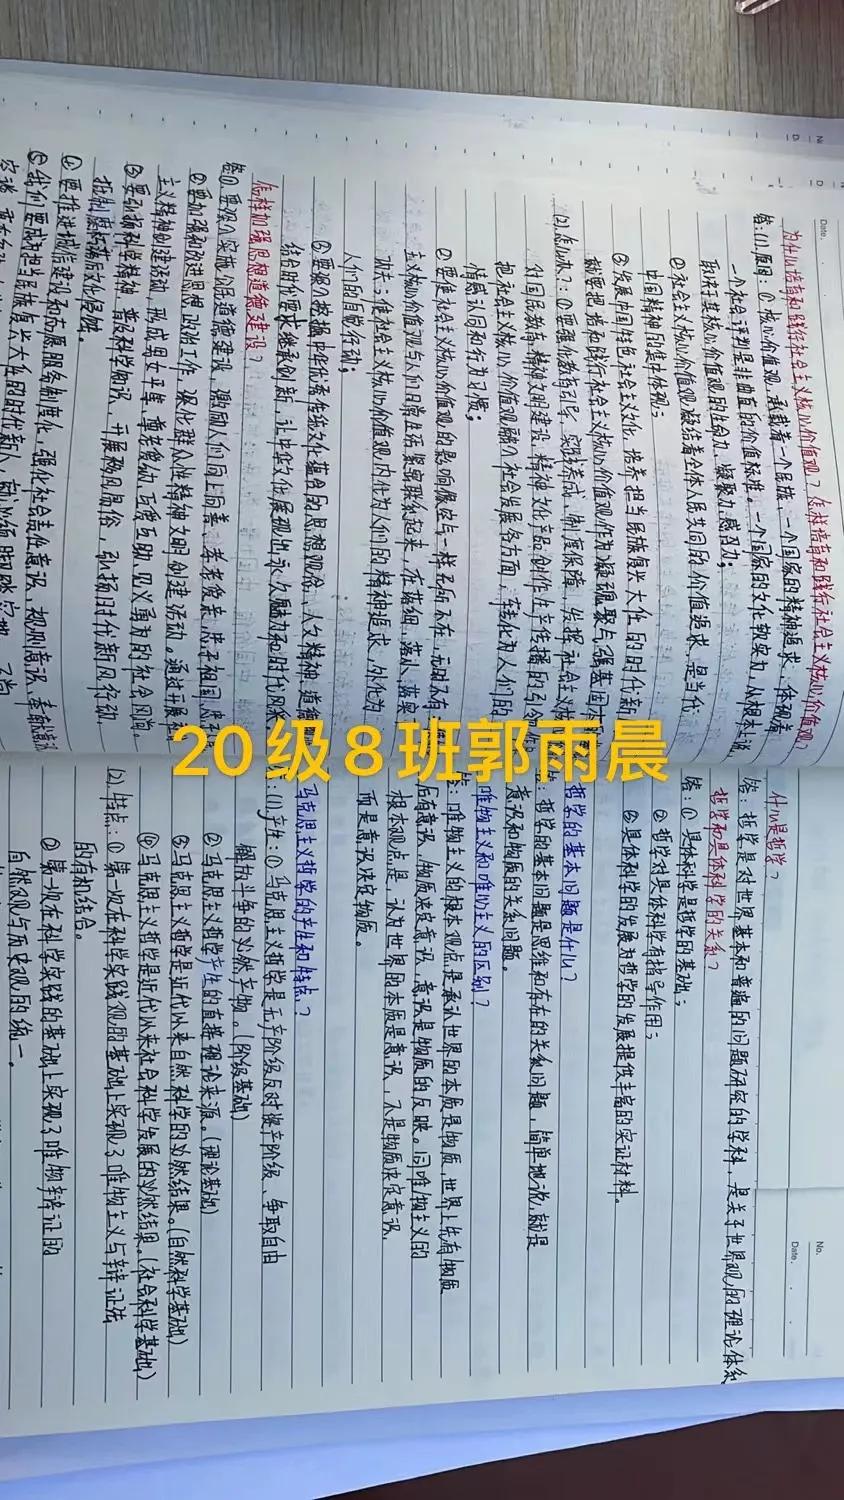 Date.
为什么培育和践行社会主义核心价值观？怎样培育和践行社会主义核心价值观？
答：(1).原因：①核心价值观，承载着一个民族，一个国家的精神追求，体现着
一个社会评判是非曲直的价值标准。一个国家的文化软实力，从根本上说，
取决于其核心价值观的生命力、凝聚力、感召力。
②社会主义核心价值观凝结着全体人民共同的价值追求，是当代
中国精神的集中体现；
③发展中国特色社会主义文化，培养担当民族复兴大任的时代新
就要把培育和践行社会主义核心价值观作为凝魂聚气、强基固本
(2).怎么做？：①要强化教育引导、实践养成、制度保障，发挥社会主义核
对国民教育、精神文明建设、精神文化产品创作生产传播的引领
把社会主义核心价值观融入社会发展各方面，转化为人们的
情感认同和行为习惯；
②要使社会主义核心价值观的影响像空气一样无所不在，无时不有
主义核心价值观与人们日常生活紧密联系起来，在落细、落小、落实
功夫；使社会主义核心价值观内化为人们的精神追求，外化为
人们的自觉行动；
③要深入挖掘中华优秀传统文化蕴含的思想观念、人文精神、道德
结合时代要求继承创新，让中华文化展现出永久魅力和时代风采
怎样加强思想道德建设？
答①要深入实施公民道德建设，激励人们向上向善、孝老爱亲，忠于祖国、忠于
②要加强和改进思想政治工作，深化群众性精神文明创建活动。通过开展
主义精神创建活动，形成男女平等、尊老爱幼、互爱互助、见义勇为的社会风尚。
③要弘扬科学精神，普及科学知识，开展移风易俗，弘扬时代新风行动，
抵制腐朽落后文化侵蚀。
④要推进诚信建设和志愿服务制度化，强化社会责任意识、规则意识、奉献意识
⑤我们要成为担当民族复兴大任的时代新人，
No.
Date.
什么是哲学？
答：哲学是对世界基本和普遍的问题研究的学科，是关于世界观的理论体系
哲学和具体科学的关系？
答：①具体科学是哲学的基础；
②哲学对具体科学有指导作用；
③具体科学的发展为哲学的发展提供丰富的实证材料。
哲学的基本问题是什么？
答：哲学的基本问题是思维和存在的关系问题，简单地说，就是
意识和物质的关系问题。
唯物主义和唯心主义的区别？
答：唯物主义的根本观点是承认世界的本质是物质，世界上先有物质
后有意识，物质决定意识，意识是物质的反映。同唯物主义的
根本观点是，认为世界的本质是意识，不是物质决定意识，
而是意识决定物质。
马克思主义哲学的产生和特点？
答：(1)产生：①马克思主义哲学是无产阶级反对资产阶级、争取自由
解放斗争的必然产物。(阶级基础)
②马克思主义哲学产生的直接理论来源。(理论基础)
③马克思主义哲学是近代以来自然科学的必然结果。(自然科学基础)
④马克思主义哲学是近代以来社会科学发展的必然结果。(社会科学基础)
(2).特点：①第一次在科学实践观的基础上实现了唯物主义与辩证法
的有机结合。
②第一次在科学实践的基础上实现了唯物辩证的
自然观与历史观的统一。
20级8班郭雨晨